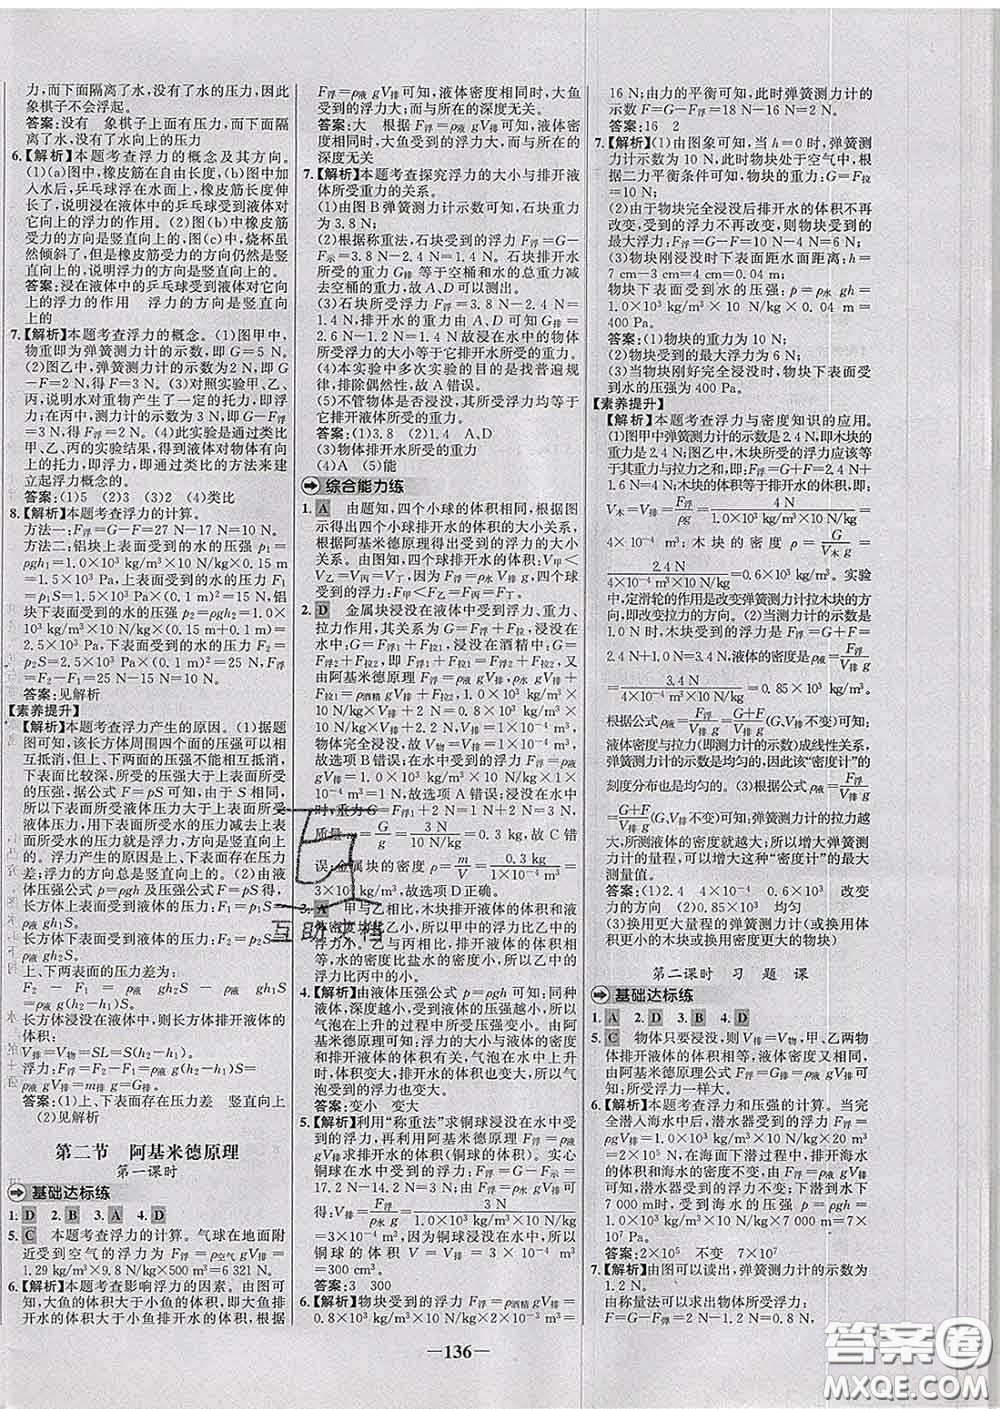 力,而下面隔离了水,没有了水的压力,因此
象棋子不会浮起。
答案:没有 象棋子上面有压力,而下面隔
离了水,没有水向上的压力
6.【解析】本题考查浮力的概念及其方向。
(1)(a)图中,橡皮筋在自由长度,(b)图中
加入水后,乒乓球浮在水面,橡皮筋长度伸
长了,说明浸在液体中的乒乓球受到液体对
它向上的浮力的作用。(2)图(b)中橡皮筋
受力的方向是竖直向上的,图(c)中,烧杯虽
然倾斜了,但是橡皮筋受力的方向仍然是竖
直向上的,说明浮力的方向是竖直向上的。
答案:浸在液体中的乒乓球受到液体对它向
上的浮力的作用 浮力的方向是竖直向
上的
7.【解析】本题考查浮力的概念。(1)图甲中,
物重即为弹簧测力计的示数,即G=5 N。
(2)图乙中,弹簧测力计的示数减少了,即
G-F=2 N,得F=3 N。(3)对照实验甲、乙、
丙可知,水对重物产生了一定的托力,即浮
力;在丙中,测力计的示数为3 N,即G-F浮=
3 N,得F浮=2 N。(4)此实验是通过类比
甲、乙、丙的实验结果,得到液体对物体有竖
直向上的托力,即浮力,通过类比的方法来建
立起浮力概念的。
答案:(1)5 (2)3 (3)2 (4)类比
8.【解析】本题考查浮力的计算。
方法一:F浮=G-F=27 N-17 N=10 N。
方法二:铝块上表面受到的水的压强p1=
ρgh1=1.0×10³ kg/m³×10 N/kg×0.15 m
=1.5×10³ Pa,铝块上表面受到的压力F1
=p1S=1.5×10³ Pa×(0.1 m)²=15 N,铝
块下表面受到的水的压强p2=ρgh2=1.0×
10³ kg/m³×10 N/kg×(0.15 m+0.1 m)=
2.5×10³ Pa,铝块下表面受到的水压力F2=
p2S=2.5×10³ Pa×(0.1 m)²=25 N,则浮力
F浮=F2-F1=25 N-15 N=10 N。
答案:见解析
【素养提升】
【解析】本题考查浮力产生的原因。(1)据题
图可知,该长方体周围四个面的压强可以相
互抵消,但上、下两面的压强不能相互抵消,
下表面比较深,所受的压强大于上表面所受
的压强,根据公式F=pS可知,由于S相同,
所以下表面所受液体压力大于上表面所受
液体压力,用下表面所受的压力减去上表面
所受的水压力就是浮力,方向是竖直向上
的。浮力产生的原因是上、下表面存在压力
差;浮力的方向总是竖直向上的。(2)由液
体压强公式p=ρgh及F=pS得,长方体上
表面受到液体的压力,F1=p1S=ρ液gh1S。
长方体下表面受到液体的压力,F2=p2S=
ρ液gh2S。
上、下两表面的压力差为:
F2-F1=ρ液gh2S-ρ液gh1S=
ρ液g(h2-h1)S。
长方体浸没在液体中时,则长方体排开液体的
体积:
V排=V物=SL=S(h2-h1)。
浮力:F浮=F2-F1=ρ液g(h2-h1)S=
ρ液gV排=m排g=G排。
答案:(1)上、下表面存在压力差 竖直向上
(2)见解析
第二节 阿基米德原理
第一课时
基础达标练
1. D 2. B 3. A 4. D
5. C 本题考查浮力的计算。气球在地面附
近受到空气的浮力为F浮=ρ空气gV排=
1.29 kg/m³×9.8 N/kg×500 m³=6 321 N。
6.【解析】本题考查影响浮力的因素。由图可
知,大鱼的体积大于小鱼的体积,即大鱼排
开水的体积大于小鱼排开水的体积,根据
F浮=ρ液gV排可知,液体密度相同时,大鱼
受到的浮力大;而与所处的深度无关。
答案:大 根据F浮=ρ液gV排可知,液体密度
相同时,大鱼受到的浮力大,与所处的深度无关
7.【解析】本题考查探究浮力的大小与排开液
体所受重力的关系。
(1)由图B弹簧测力计示数可知,石块重力
为3.8 N。
(2)根据称重法,石块受到的浮力F浮=G-
F示=3.8 N-2.4 N=1.4 N。石块排开水
所受的重力G排等于空桶和水的总重力减
去空桶的重力,故A、D可以测出。
(3)石块所受浮力F浮=3.8 N-2.4 N=
1.4 N,排开水的重力由A、D可知G排=
2.6 N-1.2 N=1.4 N,故浸在水中的物体
所受浮力的大小等于它排开水所受的重力。
(4)本实验中多次实验的目的是找普遍规
律,排除偶然性,故A错误。
(5)不管物体是否浸没,其所受浮力均等于
它排开液体所受的重力。
答案:(1)3.8 (2)1.4 A、D
(3)物体排开水所受的重力
(4)A (5)能
综合能力练
1. A 由题知,四个小球的体积相同,根据图
示得出四个小球排开水的体积的大小关系,
根据阿基米德原理得出受到的浮力的大小
关系。由图知,四个球排开水的体积:V甲<
V乙=V丙=V丁,因为F浮=ρ水gV排,四个球
受到的浮力:F甲<F乙=F丙=F丁。
2. D 金属块浸没在液体中受到浮力、重力、
拉力作用,其关系为G=F浮+F拉,浸没在
水中:G=F浮1+F拉1,浸没在酒精中:
G=F浮2+F拉2,即F浮1+F拉1=F浮2+F拉2,又
由阿基米德原理得出,
F拉1=ρ酒精gV排+F拉2,1.0×10³ kg/m³×
10 N/kg×V排+2 N=0.8×10³ kg/m³×
10 N/kg×V排+2.2 N,V排=1×10⁻⁴ m³,
物体完全浸没在水中,故V物=V排=1×
10⁻⁴ m³,故选项A错误;浸没在水中
时,重力G=F浮1+2 N=1 N+2 N=3 N,
质量m=G/g=3 N/10 N/kg=0.3 kg,故C错
误;金属块的密度ρ=m/V=0.3 kg/1×10⁻⁴ m³=
3×10³ kg/m³,故选项D正确。
3. A 甲与乙相比,木块排开液体的体积和液
体密度均比乙小,所以甲中的浮力比乙中的
浮力小。
4.【解析】由液体压强公式p=ρgh可知:同种
液体,深度越小,受到的压强越小,所以
气泡在上升的过程中所受压强变小。由阿
基米德原理可知:浮力的大小与液体的密度
和排开液体的体积有关,气泡在水中上升
时,体积变大,排开水的体积变大,所以气泡
受到的浮力也变大。
答案:变小 变大
5.【解析】利用“称重法”求铜球浸没在水中受
到的浮力,再利用阿基米德原理F浮=
ρ水gV排求排开水的体积(铜球的体积)。实心
铜球在水中受到的浮力:F浮=G-F示=
17.2 N-14.2 N=3 N;由F浮=ρ水gV排
得:V排=F浮/ρ水g=3 N/1.0×10³ kg/m³×10 N/kg=
3×10⁻⁴ m³;因为铜球浸没在水中,所以
铜球的体积V=V排=3×10⁻⁴ m³=
300 cm³。
答案:3 300
6.【解析】物块受到的浮力F浮=ρ酒精gV排=
0.8×10³ kg/m³×10 N/kg×2×10⁻³ m³=
16 N;由力的平衡可知,此时弹簧测力计的
示数F=G-F浮=18 N-16 N=2 N。
答案:16 2
7.【解析】(1)由图象可知,当h=0时,弹簧测
力计示数为10 N,此时物块处于空气中,根
据二力平衡条件可知,物块的重力G=F拉
=10 N。
(2)由于物块完全浸没后排开水的体积不再
改变,受到的浮力不再改变,则物块受到的
最大浮力:F浮=G-F=10 N-4 N=6 N。
(3)物块刚浸没时下表面距水面距离:h=
7 cm-3 cm=4 cm=0.04 m;
物块下表面受到水的压强:p=ρ水gh=
1.0×10³ kg/m³×10 N/kg×0.04 m=
400 Pa。
答案:(1)物块的重力为10 N;
(2)物块受到的最大浮力为6 N;
(3)当物块刚好完全浸没时,物块下表面受
到水的压强为400 Pa。
【素养提升】
【解析】本题考查浮力与密度知识的应用。
(1)图甲中弹簧测力计的示数是2.4 N,即木块的
重力;图乙中,木块所受的浮力应该等于
其重力与拉力之和,即:F浮=G+F=2.4 N+
1.6 N=4 N;木块的体积等于排开水的体积,即:
V木=V排=F浮/ρg=4 N/1.0×10³ kg/m³×10 N/kg=
4×10⁻⁴ m³;木块的密度ρ=G/V木g=
2.4 N/4×10⁻⁴ m³×10 N/kg=0.6×10³ kg/m³。实验
中,定滑轮的作用是改变弹簧测力计拉木块的方
向,即改变力的方向。(2)当测力计的示数是
1.0 N时,则浸没在某液体中木块所受的浮力是
2.4 N+1.0 N=3.4 N,液体的密度是ρ液=F浮/V排g=
3.4 N/4×10⁻⁴ m³×10 N/kg=0.85×10³ kg/m³。
根据公式ρ液=F浮/V排g=G+F/V排g(G,V排不变)可知:
液体密度与拉力(即测力计的示数)成线性关系,
弹簧测力计的示数是均匀的,因此该“密度计”的
刻度分布也是均匀的。(3)根据公式ρ液=F浮/V排g=
G+F/V排g(G,V排不变)可知:弹簧测力计的拉力越大
,所以,可以增大这种“密度计”的最大
测量值。
答案:(1)2.4 4 0.6×10³ 改变
力的方向 (2)0.85×10³ 均匀
(3)换用更大量程的弹簧测力计(或换用体
积更小的木块或换用密度更大的物块)
第二课时 习题课
基础达标练
1. A 2. D 3. B 4. D
5. C 物体只要浸没,则V排=V物,甲、乙两物
体排开液体的体积相等,液体密度又相同,
由阿基米德原理F浮=ρ液gV排可知,
所受浮力一样大。
6.【解析】本题考查浮力和压强的计算。当完
全潜入海水中时,潜水器受到的浮力:F浮=
答案:2×10⁵ 不变 7×10⁷
7.【解析】由图可以读出,弹簧测力计的示数为
1.2 N。
由称量法可以求出物体所受浮力:
F浮=G-F=2 N-1.2 N=0.8 N。
—136—
互助文档
答案圈
MXQE.COM